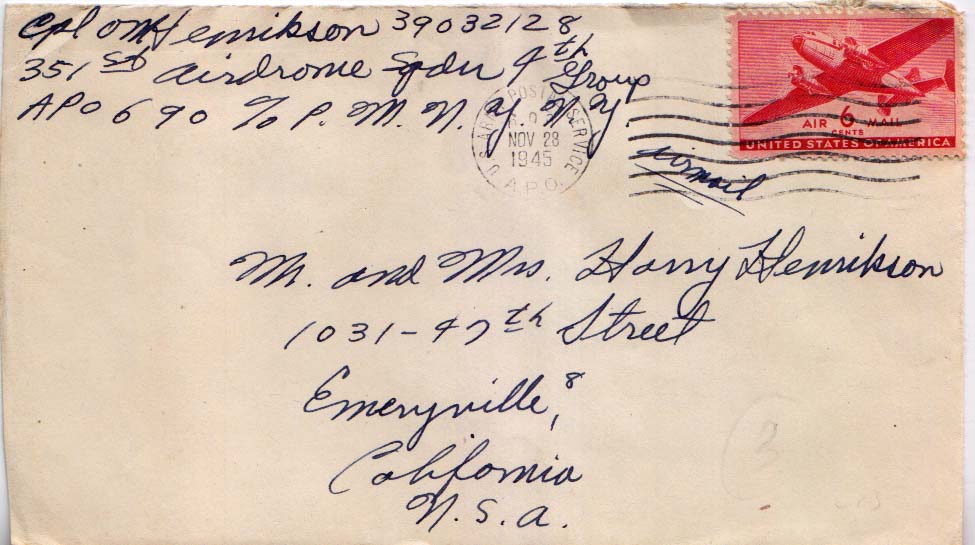 Cpl O M Henrikson 39032128
351 st Airdrome Sqdn 4th Group
APO 690 % P. M. N. Y. N. Y.
U.S. ARMY POSTAL SERVICE
NOV 28
1945
A.P.O.
AIR 6 MAIL
CENTS
UNITED STATES OF AMERICA
airmail
Mr. and Mrs. Harry Henrikson
1031-47th Street
Emeryville 8,
California
U.S.A.
3